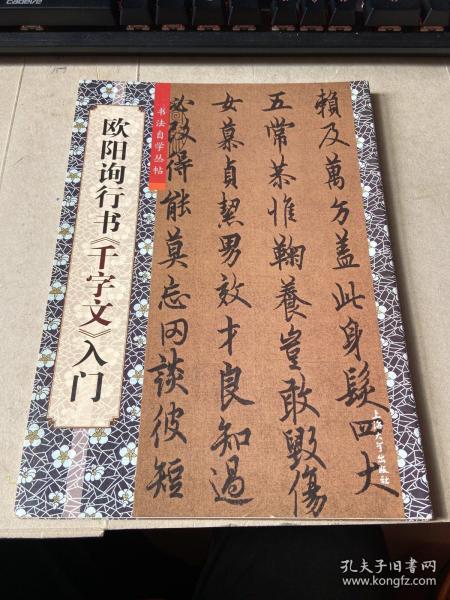 cadeve
欧阳询行书《千字文》入门
书法自学丛帖
赖及萬方盖此身髮四大
五常恭惟鞠養豈敢毀傷
女慕貞潔男效才良知過
必改得能莫忘罔談彼短
上海大学出版社
孔夫子旧书网
www.kongfz.com